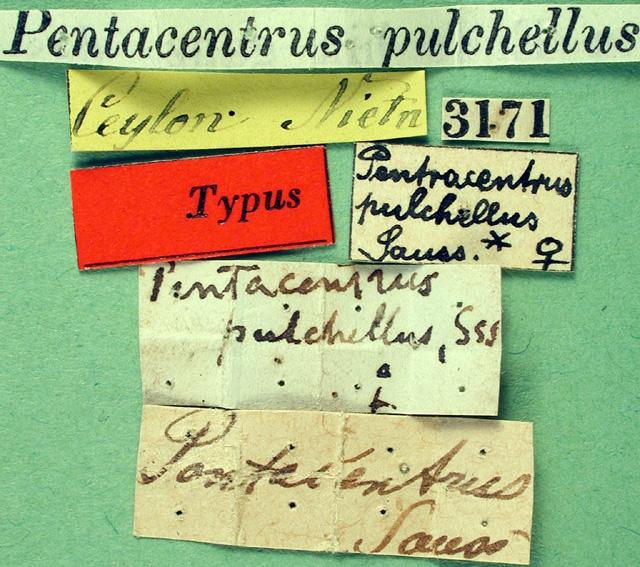 Pentacentrus pulchellus
Ceylon. Nietn
3171
Typus
Pentracentrus
pulchellus
Sauss.* ♀
Pentacentrus
pulchellus, Sss
Pentacentrus
Sauss